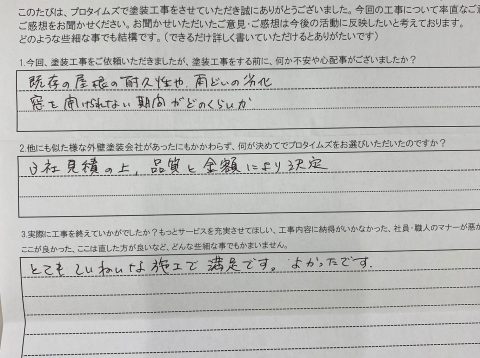 このたびは、プロタイムズで塗装工事をさせていただき誠にありがとうございました。今回の工事について率直なご
ご感想をお聞かせください。お聞かせいただいたご意見・ご感想は今後の活動に反映したいと考えております。
どのような些細な事でも結構です。（できるだけ詳しく書いていただけるとありがたいです）
1.今回、塗装工事をご依頼いただきましたが、塗装工事をする前に、何か不安や心配事がございましたか？
既存の屋根の耐久性や、雨どいの劣化
窓を開けられない期間がどのくらいか
2.他にも似た様な外壁塗装会社があったにもかかわらず、何が決めてでプロタイムズをお選びいただいたのですか？
3社見積の上、品質と金額により決定
3.実際に工事を終えていかがでしたか？もっとサービスを充実させてほしい、工事内容に納得がいかなかった、社員・職人のマナーが悪か
ここが良かった、ここは直した方が良いなど、どんな些細な事でもかまいません。
とてもていねいな施工で満足です。よかったです。